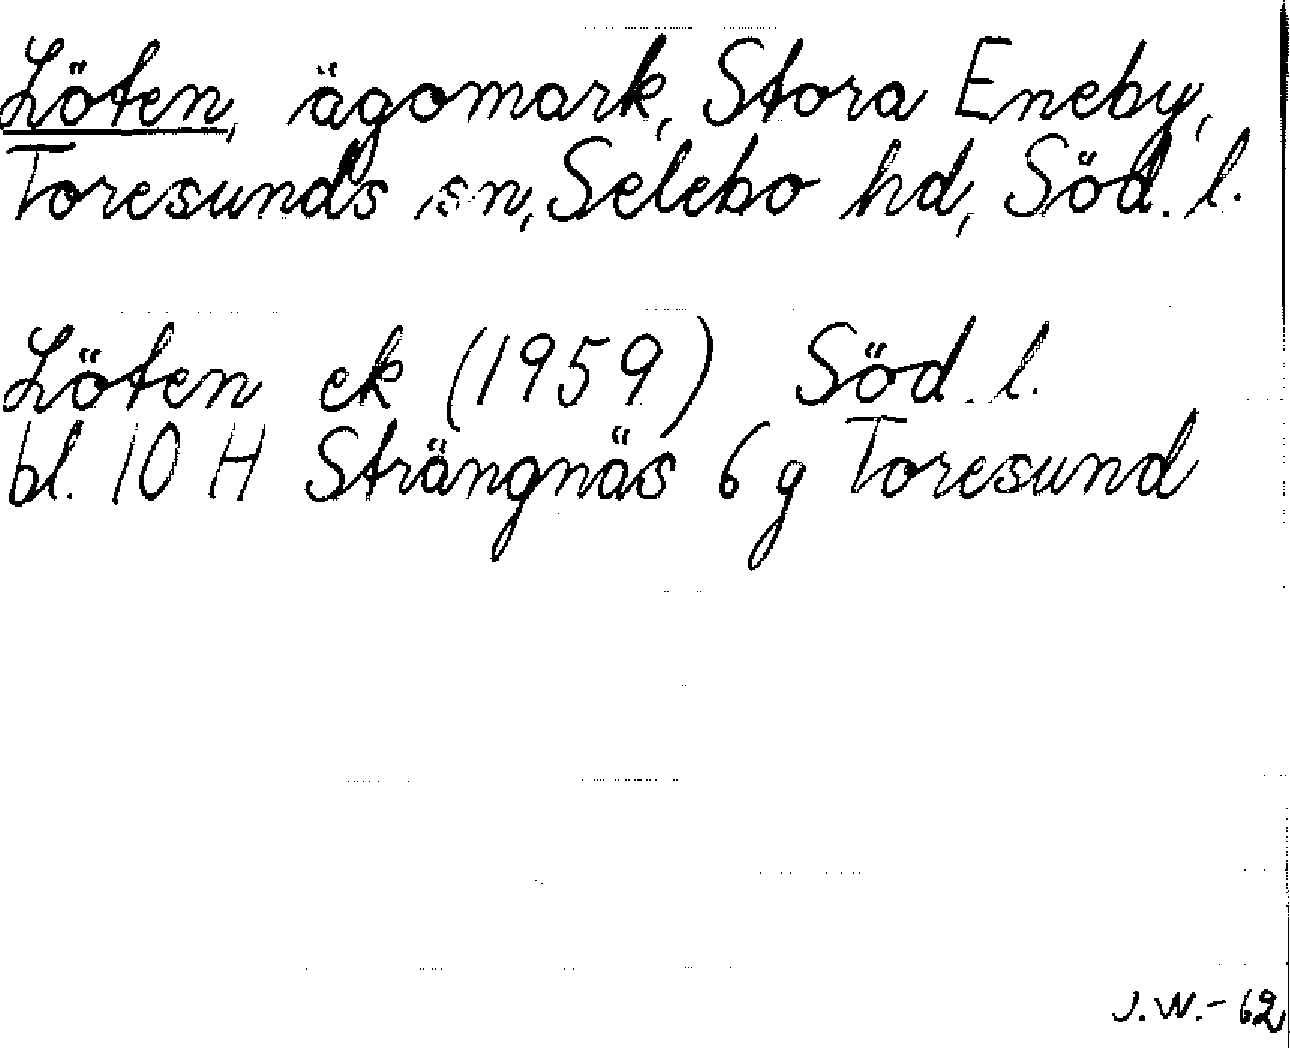 Löten, ägomark, Stora Eneby,
Toresunds sn, Selebo hd, Söd. l.
Löten ek (1959) Söd. l.
bl. 10 H Strängnäs 6 g Toresund
J.W.-62